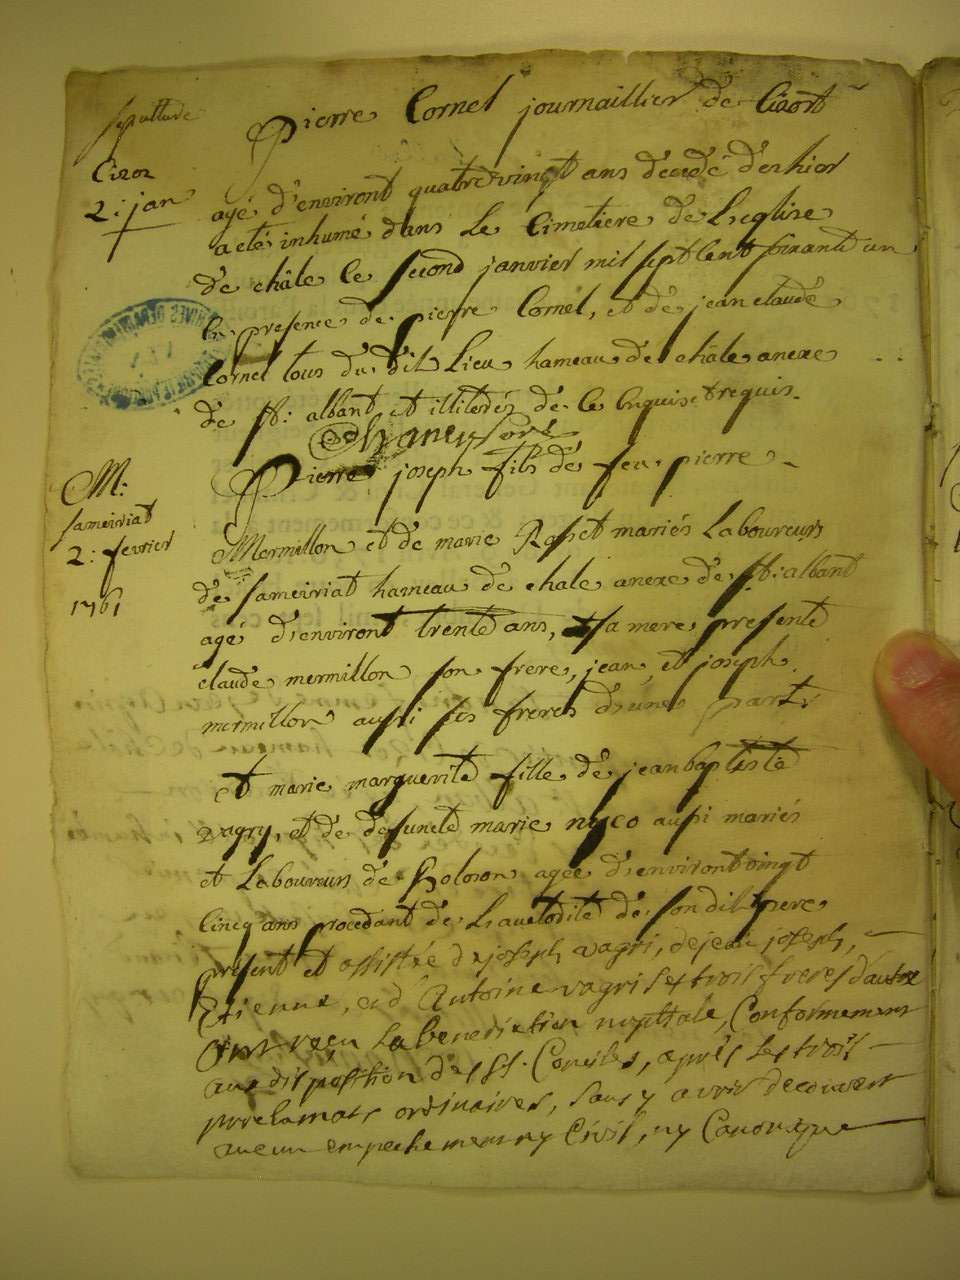 sepulture
Cizor
2: jan
Pierre Cornel journaillier de Cizort
agé d'environt quatre vingt ans decedé d'erhier
a eté inhumé dans Le Cimetiere de L'eglise
de châle le second janvier mil sept cent soixante un
En presence de pierre Cornel, et de jean claude
Cornel tous du dit Lieu hameau de châle anexe
de St: albant et illiterés de ce enquis et requis.
M:
sameiriat
2: fevrier
1761
Pierre joseph fils de feu pierre
Mermillon et de marie Rosset mariés Laboureurs
de sameiriat hameau de chale anexe de St: albant
agé d'environt trente ans, et sa mere presente
claude mermillon son frere, jean, et joseph
mermillon aussi ses freres d'une part
et marie marguerite fille de jean baptiste
vagry, et de defuncte marie nyco aussi mariés
et Laboureurs de Bolozon agée d'environt vingt
Cinq ans procedant de L'auctorité de son dit pere
present et assistée de joseph vagri, de jean joseph,
Etienne, et d'Antoine vagri ses trois freres d'autre
Ont reçu la benediction nuptiale, Conformement
aux disposition des SS. Conciles, après les trois
proclamats ordinaires, sans y avoir decouvert
aucun empechement ny Civil, ny Canonique